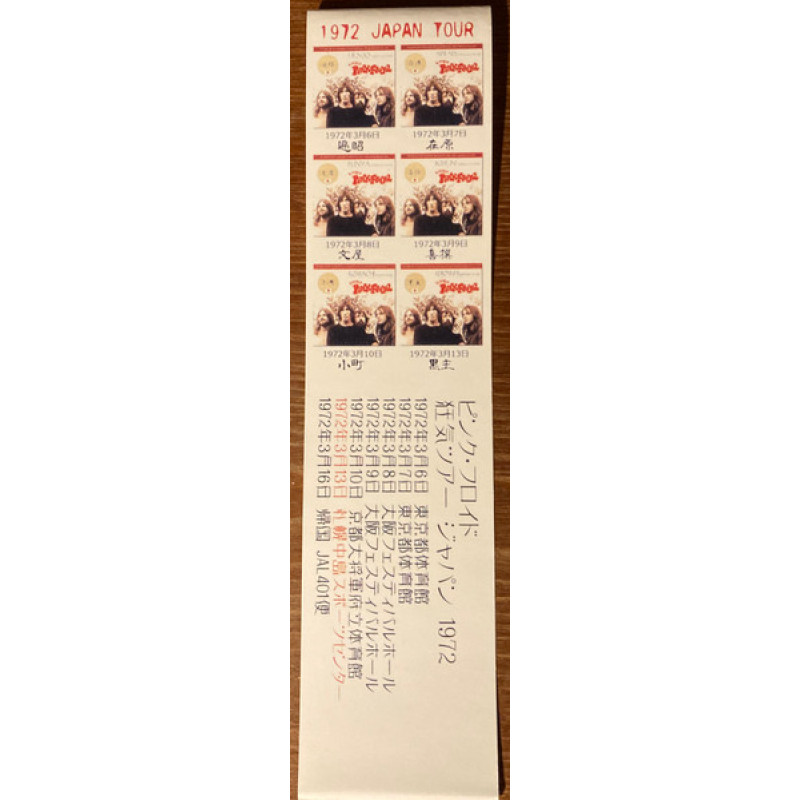 1972 JAPAN TOUR
1972年3月6日
1972年3月7日
遍昭
在原
1972年3月8日
1972年3月9日
文屋
喜撰
1972年3月10日
1972年3月13日
小町
黒主
ピンク・フロイド
狂気ツアー ジャパン 1972
1972年3月6日 東京都体育館
1972年3月7日 東京都体育館
1972年3月8日 大阪フェスティバルホール
1972年3月9日 大阪フェスティバルホール
1972年3月10日 京都大将軍府立体育館
1972年3月13日 札幌中島スポーツセンター
1972年3月16日 帰国 JAL401便